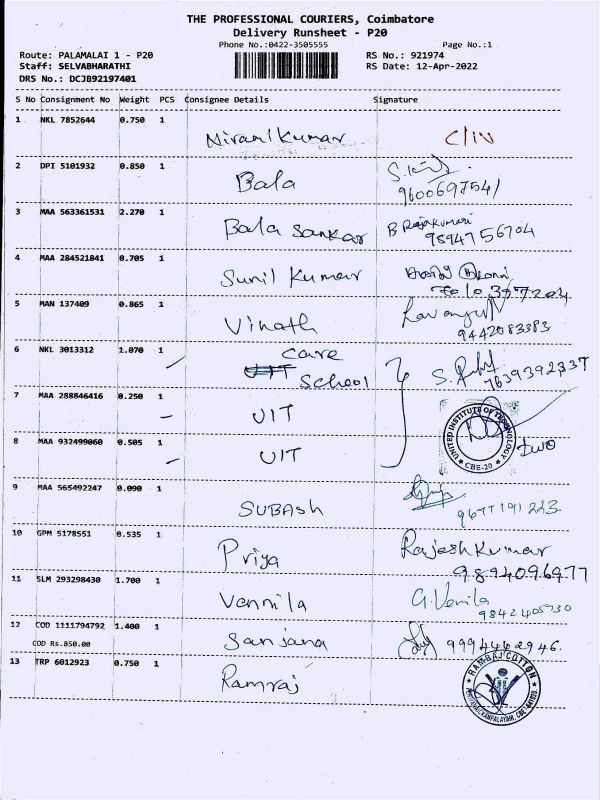 THE PROFESSIONAL COURIERS, Coimbatore
Delivery Runsheet - P20
Phone No.:0422-3505555 Page No.:1
Route: PALAMALAI 1 - P20 RS No.: 921974
Staff: SELVABHARATHI RS Date: 12-Apr-2022
DRS No.: DCJB92197401
S No Consignment No Weight PCS Consignee Details Signature
1 NKL 7852644 0.750 1
Niranl Kumar
2 DPI 5101932 0.850 1
Bala 9600697541
3 MAA 563361531 2.270 1
Bala Sankar B Rajakumari
9894756704
4 MAA 284521841 0.705 1
Sunil Kumar
5 MAN 137409 0.865 1
Vinath
9442083383
6 NKL 3013312 1.070 1
care
School 7639392337
7 MAA 288846416 0.250 1
UIT
UNITED INSTITUTE OF TECHNOLOGY
CBE-20
8 MAA 932499060 0.505 1
UIT
9 MAA 565492247 0.090 1
SUBASh 9677191223
10 GPM 5178551 0.535 1
Priya Rajesh Kumar
9894096977
11 SLM 293298430 1.700 1
Vennila G. Venila
9842405730
12 COD 1111794792 1.400 1
COD Rs.850.00
Sanjana 9994442946.
13 TRP 6012923 0.750 1
Ramraj
RAMRAJ COTTON